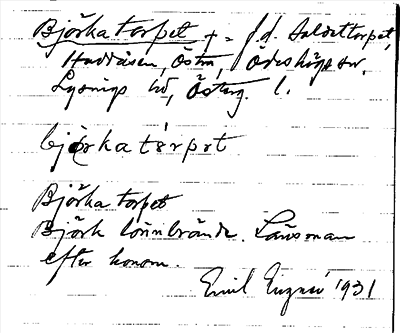 Björkatorpet + = f.d. soldattorpet,
Haddåsen, Östra, Ödeshögs sn,
Lysings hd, Österg. l.
björkatɔrpɛt
Björkatorpet
Björk lönnbrände. Länsman
efter honom.
Emil 1931